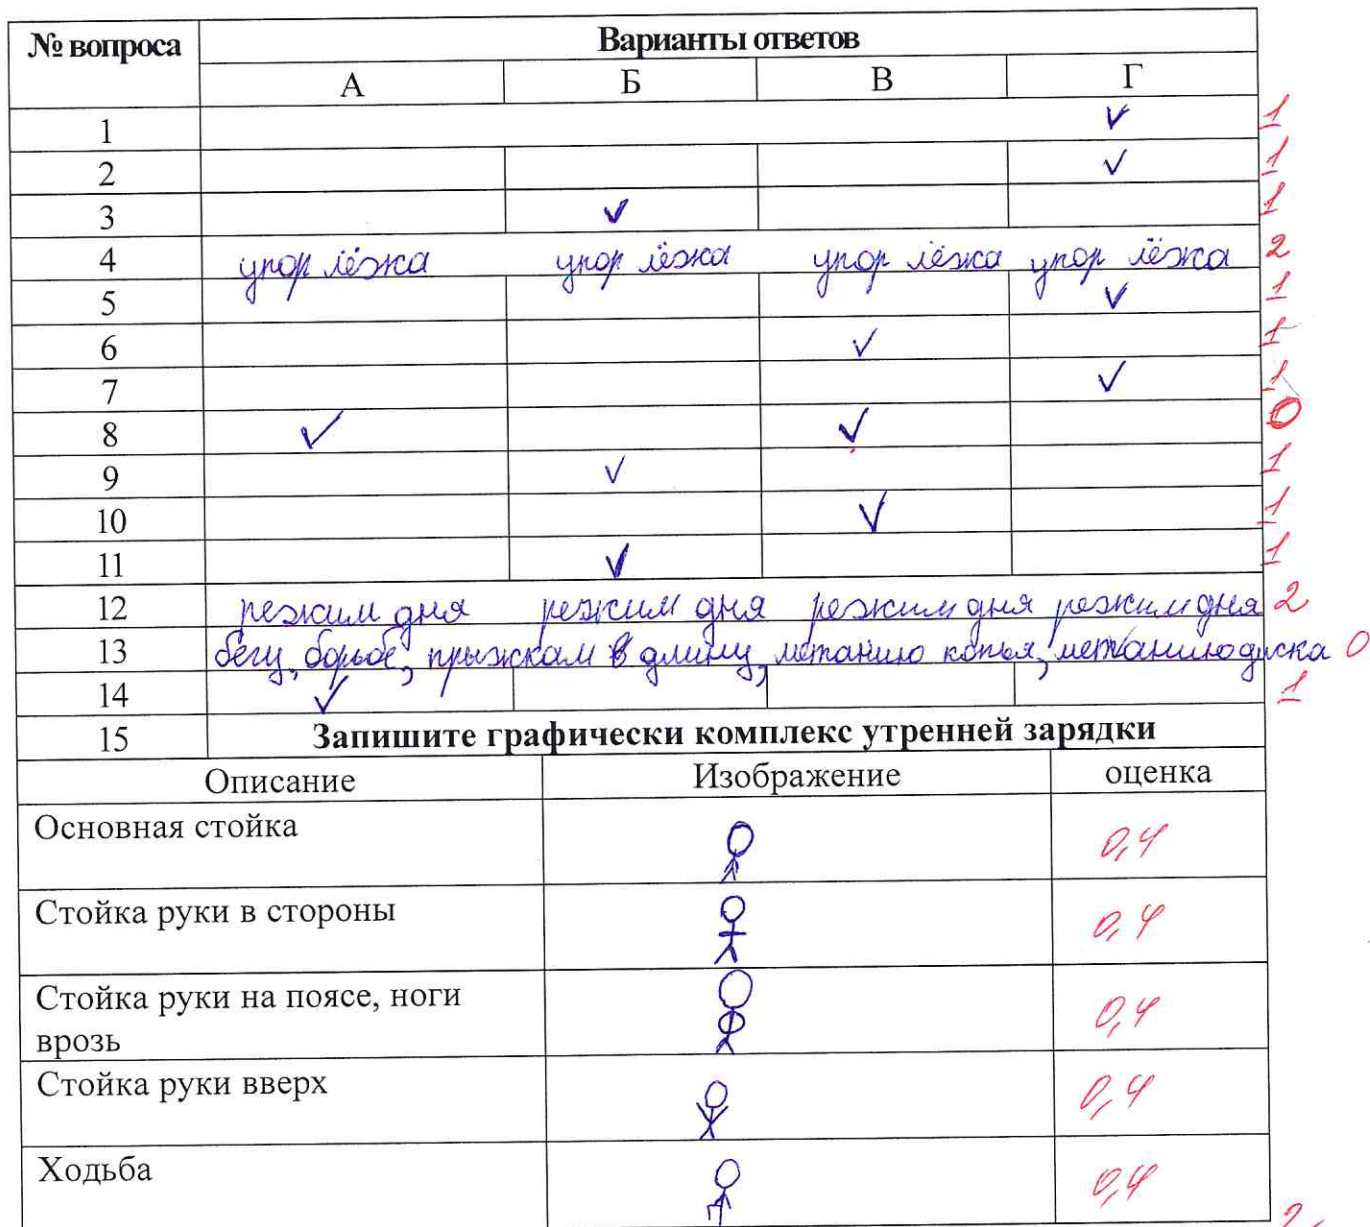 № вопроса Варианты ответов
А Б В Г
1 ✓ 1
2 ✓ 1
3 ✓ 1
4 упор лёжа упор лёжа упор лёжа упор лёжа 2
5 ✓ 1
6 ✓ 1
7 ✓ 1
8 ✓ ✓ 0
9 ✓ 1
10 ✓ 1
11 ✓ 1
12 режим дня режим дня режим дня режим дня 2
13 бегу, борьбе, прыжкам в длину, метанию копья, метанию диска 0
14 ✓ 1
15 Запишите графически комплекс утренней зарядки
Описание Изображение оценка
Основная стойка 0,4
Стойка руки в стороны 0,4
Стойка руки на поясе, ноги
врозь 0,4
Стойка руки вверх 0,4
Ходьба 0,4
2